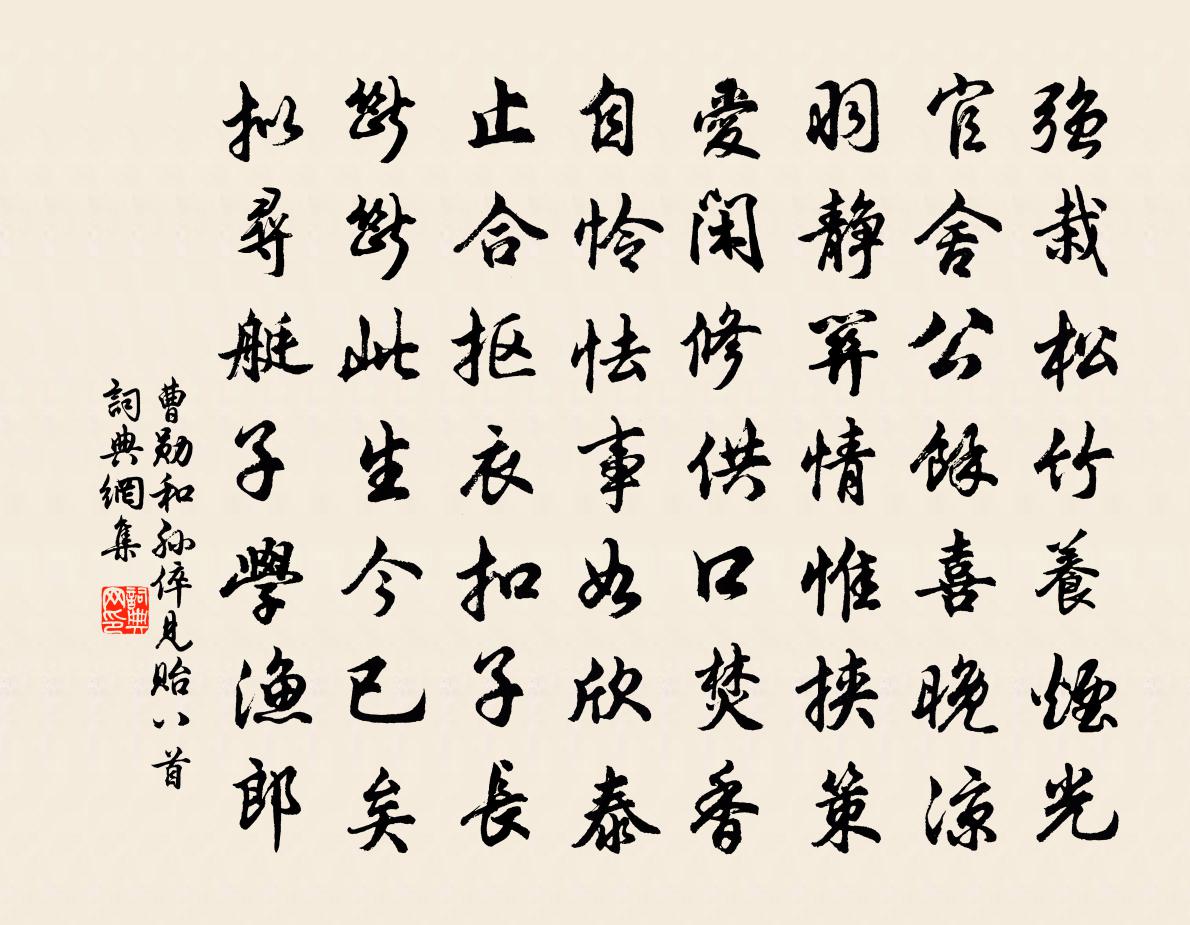 强栽松竹養煙光
官舍公餘喜晚涼
靜情惟挾策
愛閑修供口焚香
自怜怯事如欣泰
止合抠衣扣子長
斷斷此生今已矣
拟尋艇子學漁郎
曹勋和孙倅見貽八首
詞典網集
詞典网印